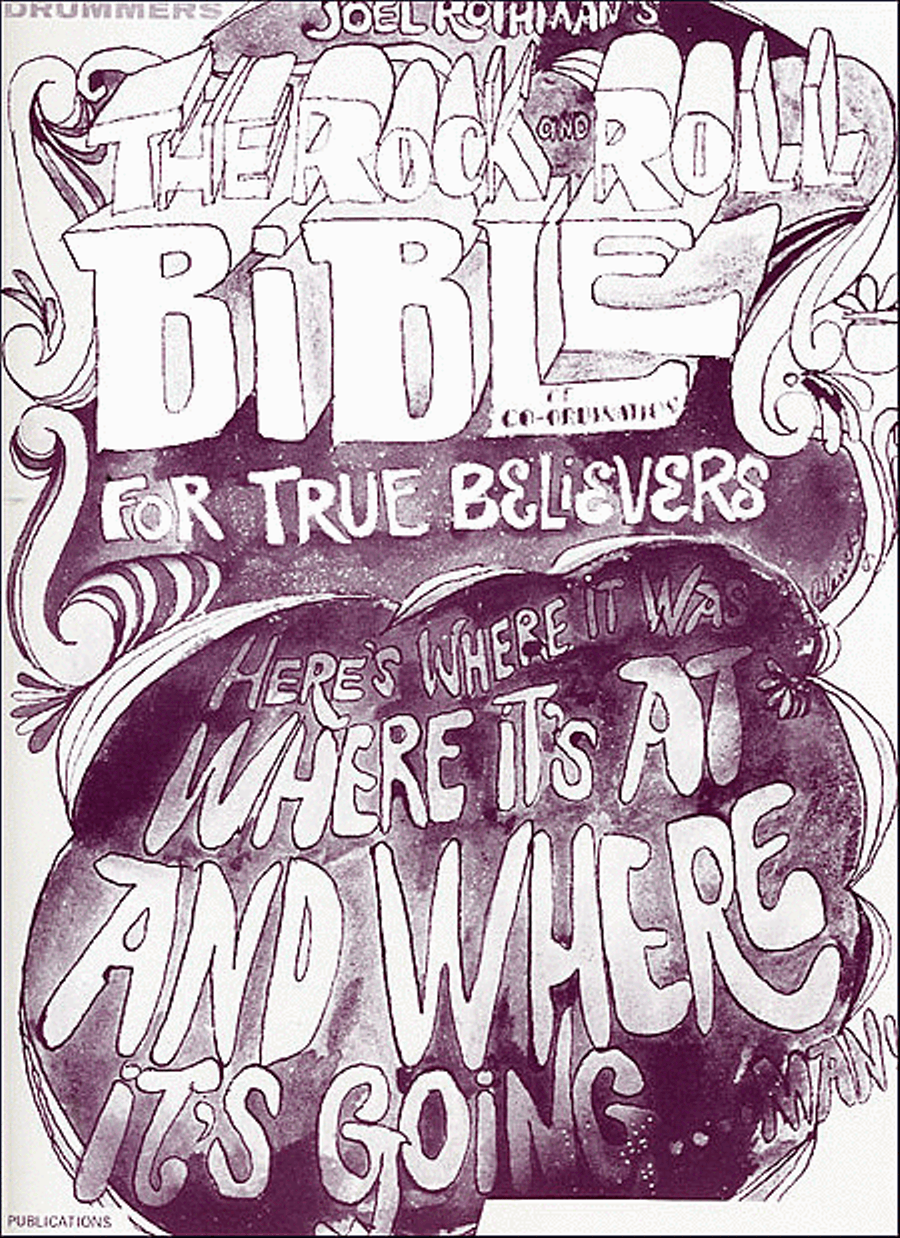 DRUMMERS
JOEL ROTHMAN'S
THE ROCK AND ROLL
BiBLE
OF
CO-ORDINATION
FOR TRUE BELiEVERS
HERE'S WHERE iT WAS
WHERE iT'S AT
AND WHERE
iT'S GOiNG
PUBLICATIONS